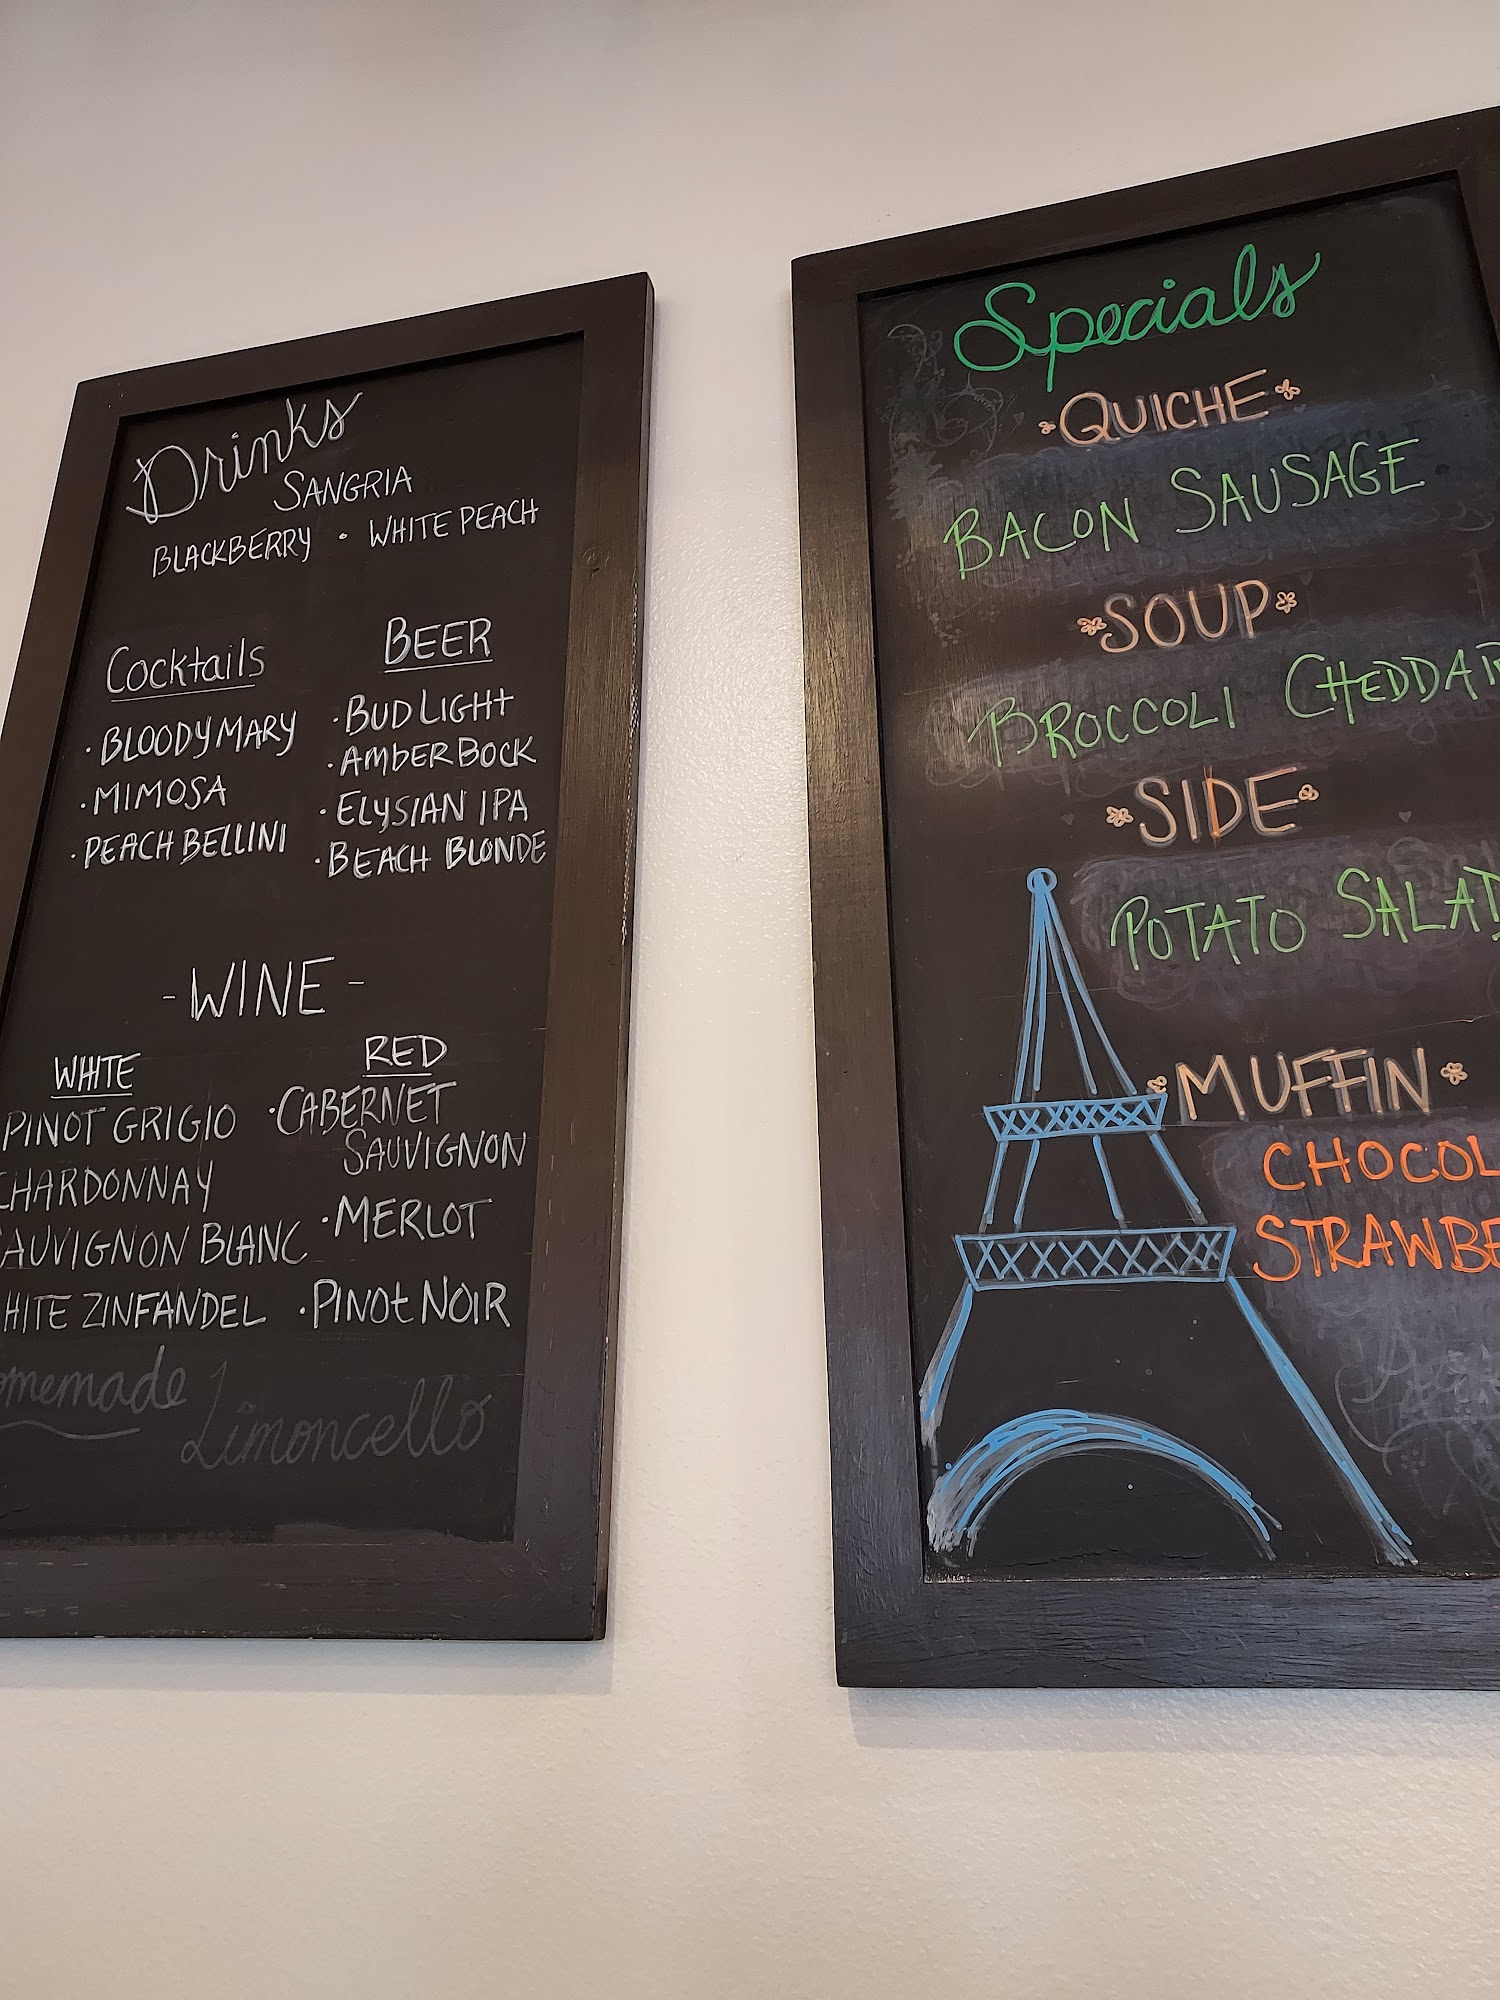 Drinks
SANGRIA
BLACKBERRY • WHITE PEACH
Cocktails
· BLOODY MARY
· MIMOSA
· PEACH BELLINI
BEER
· BUD LIGHT
· AMBER BOCK
· ELYSIAN IPA
· BEACH BLONDE
- WINE -
WHITE
PINOT GRIGIO
CHARDONNAY
SAUVIGNON BLANC
HITE ZINFANDEL
RED
· CABERNET
SAUVIGNON
· MERLOT
· PINOT NOIR
omemade
Limoncello
Specials
QUICHE
BACON SAUSAGE
SOUP
BROCCOLI CHEDDAR
SIDE
POTATO SALAD
MUFFIN
CHOCOL
STRAWBE